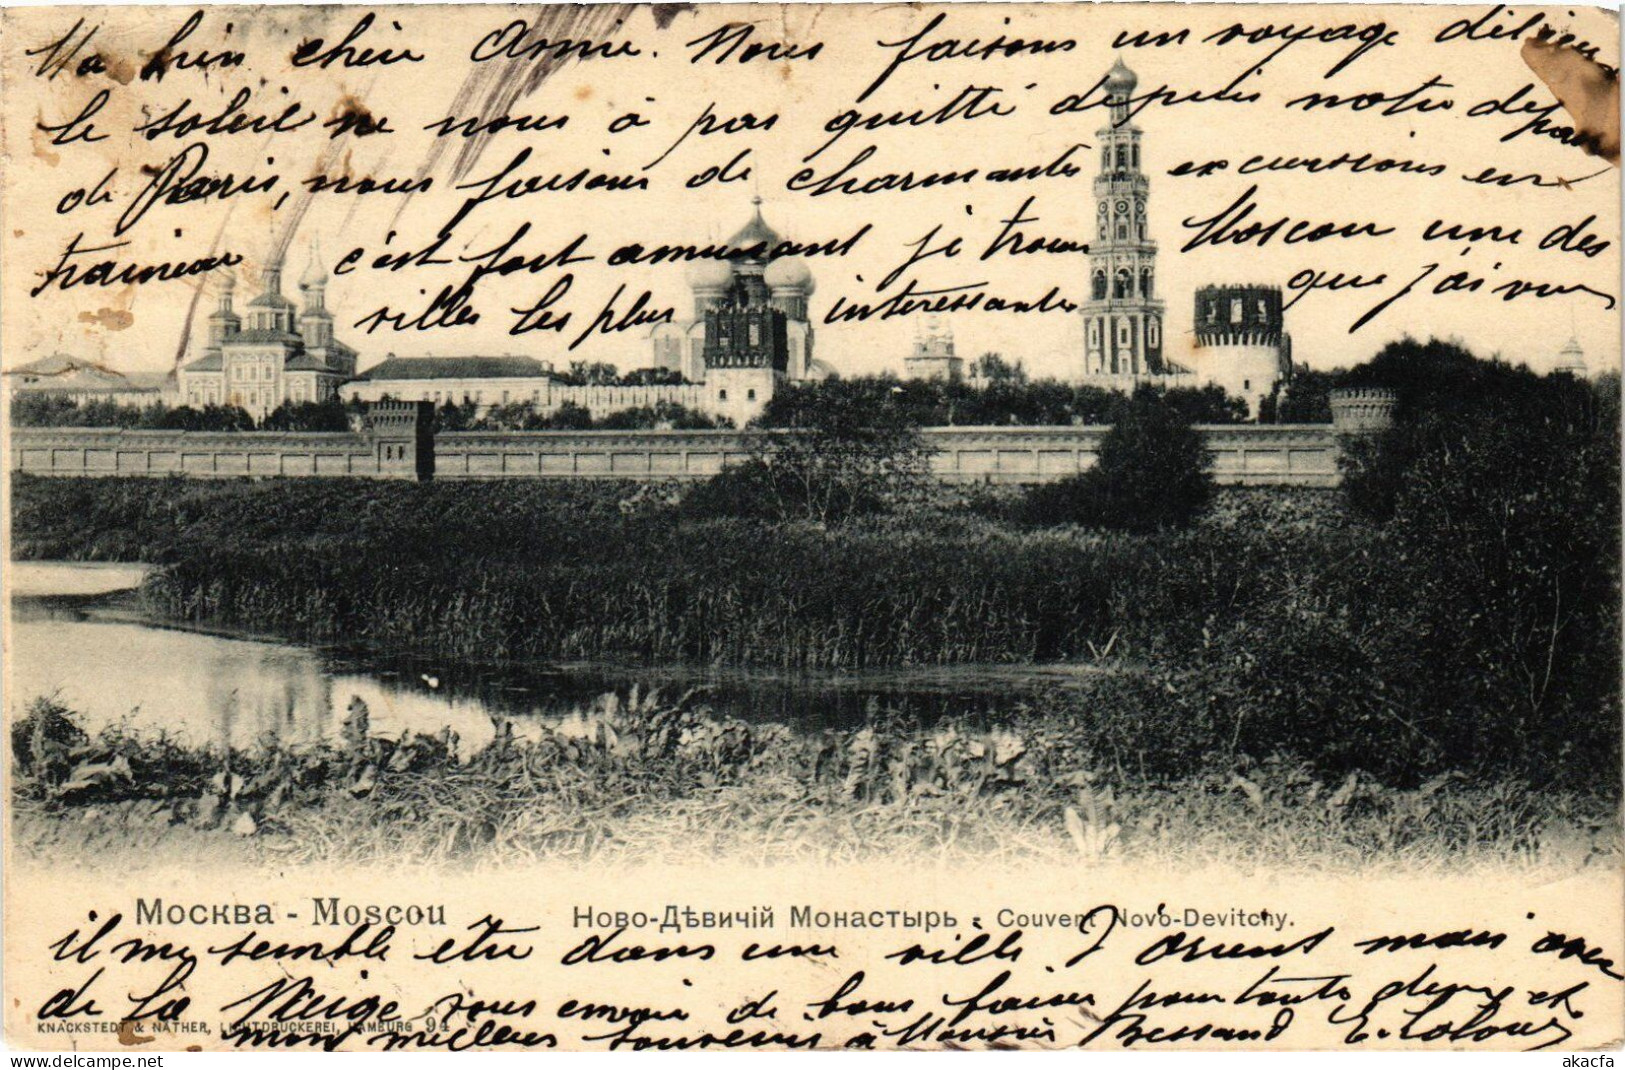 Ma bien chère Amie. Nous faisons un voyage délicieux
le soleil ne nous à pas quitté depuis notre départ
de Paris, nous faisons de charmantes excursions en
traineau c'est fort amusant je trouve Moscou une des
villes les plus interessantes que j'ai vues
Москва - Moscou Ново-Дѣвичій Монастырь - Couvent Novo-Devitchy.
il me semble être dans une ville d'orient mais avec
de la Neige, vous envoie de bons baisers pour toutes deux et
KNACKSTEDT & NÄTHER, LICHTDRUCKEREI, HAMBURG 94
mon meilleur souvenir à Monsieur Bessand
akpool.co.uk
akacfa